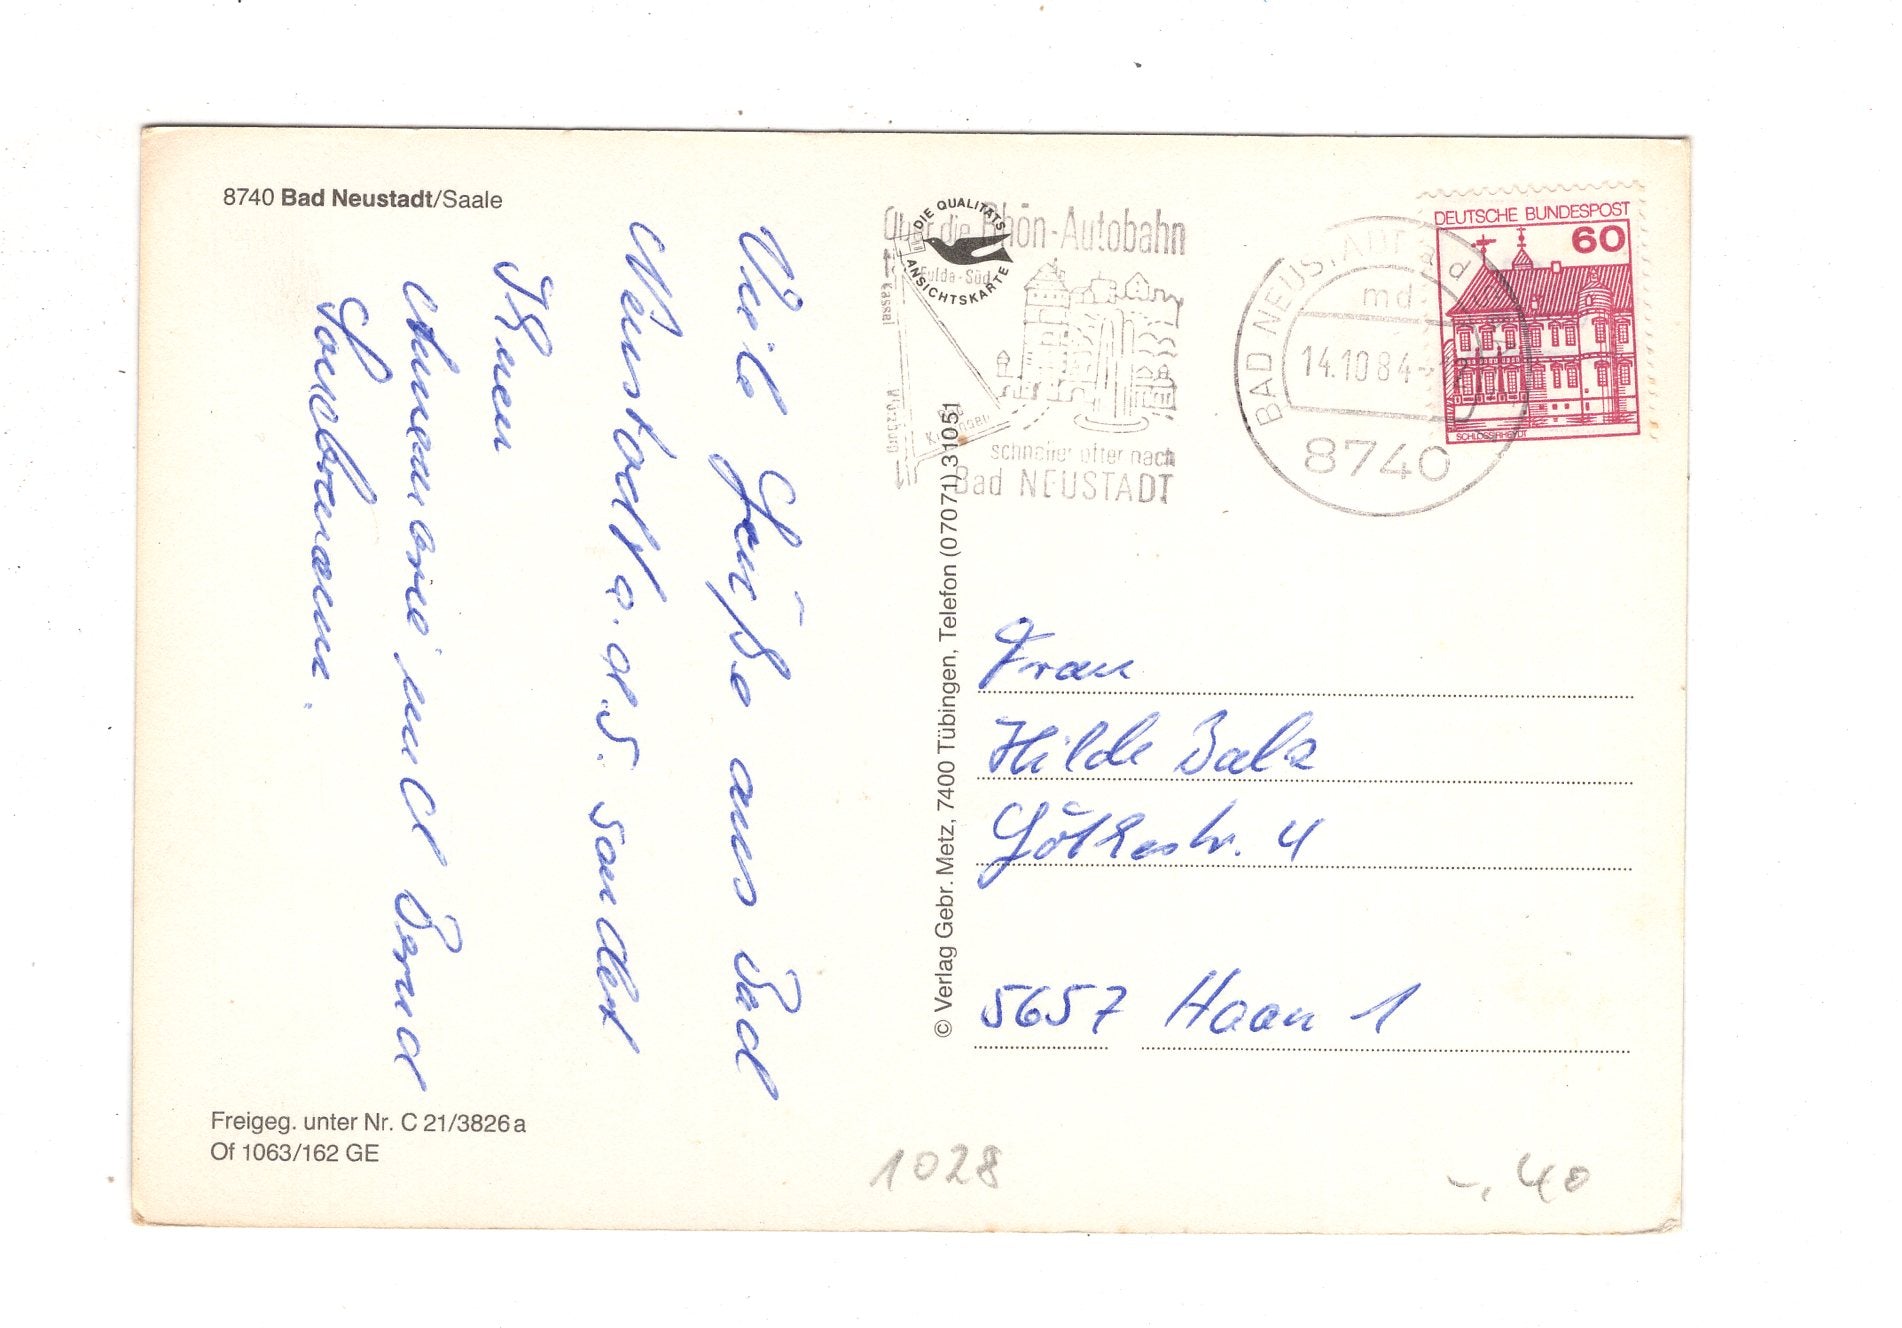 8740 Bad Neustadt/Saale
Viele Grüße aus Bad
Neustadt a. d. S. sendet
Ihnen
Annemarie und Bernd
Freigeg. unter Nr. C 21/3826 a
Of 1063/162 GE
© Verlag Gebr. Metz, 7400 Tübingen, Telefon (07071) 31051
DIE QUALITÄTS
ANSICHTSKARTE
Über die Rhön-Autobahn
Fulda-Süd
Kassel
Würzburg
Bad
schneller öfter nach
Bad NEUSTADT
BAD NEUSTADT a d
md
14.10.84
8740
DEUTSCHE BUNDESPOST
60
SCHLOSS RHEYDT
Frau
Hilde Bals
Göthestr. 4
5657 Haan 1
1028
-.40